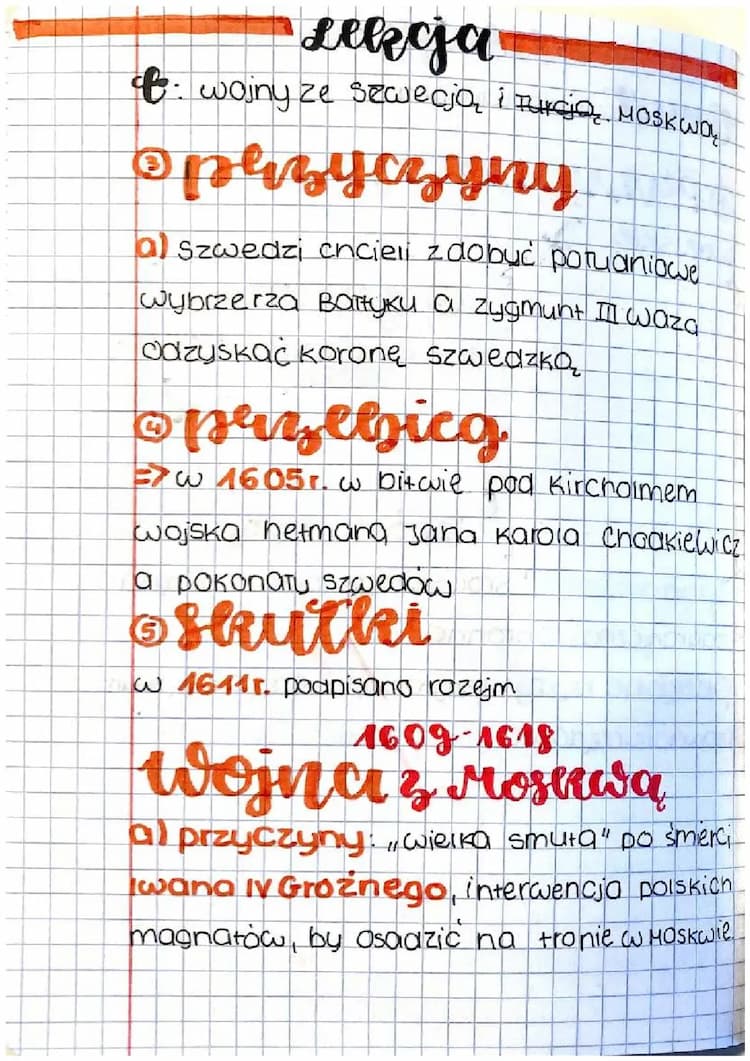 Lekcja
t: wojny ze Szwecją i Turcją. Moskwą
③ przyczyny
a) Szwedzi chcieli zdobyć połudaniowe
wybrzerza Bałtyku a Zygmunt III Waza
odzyskać koronę szwedzką
④ przebieg
=> w 1605r. w bitwie pod Kircholmem
wojska hetmana Jana Karola Chodkiewicz
a pokonały szwedów
⑤ skutki
w 1611r. podpisano rozejm
1609-1618
wojna z Moskwą
a) przyczyny: „wielka smuta" po śmierci
Iwana IV Groźnego, interwencja polskich
magnatów, by osadzić na tronie w Moskwie